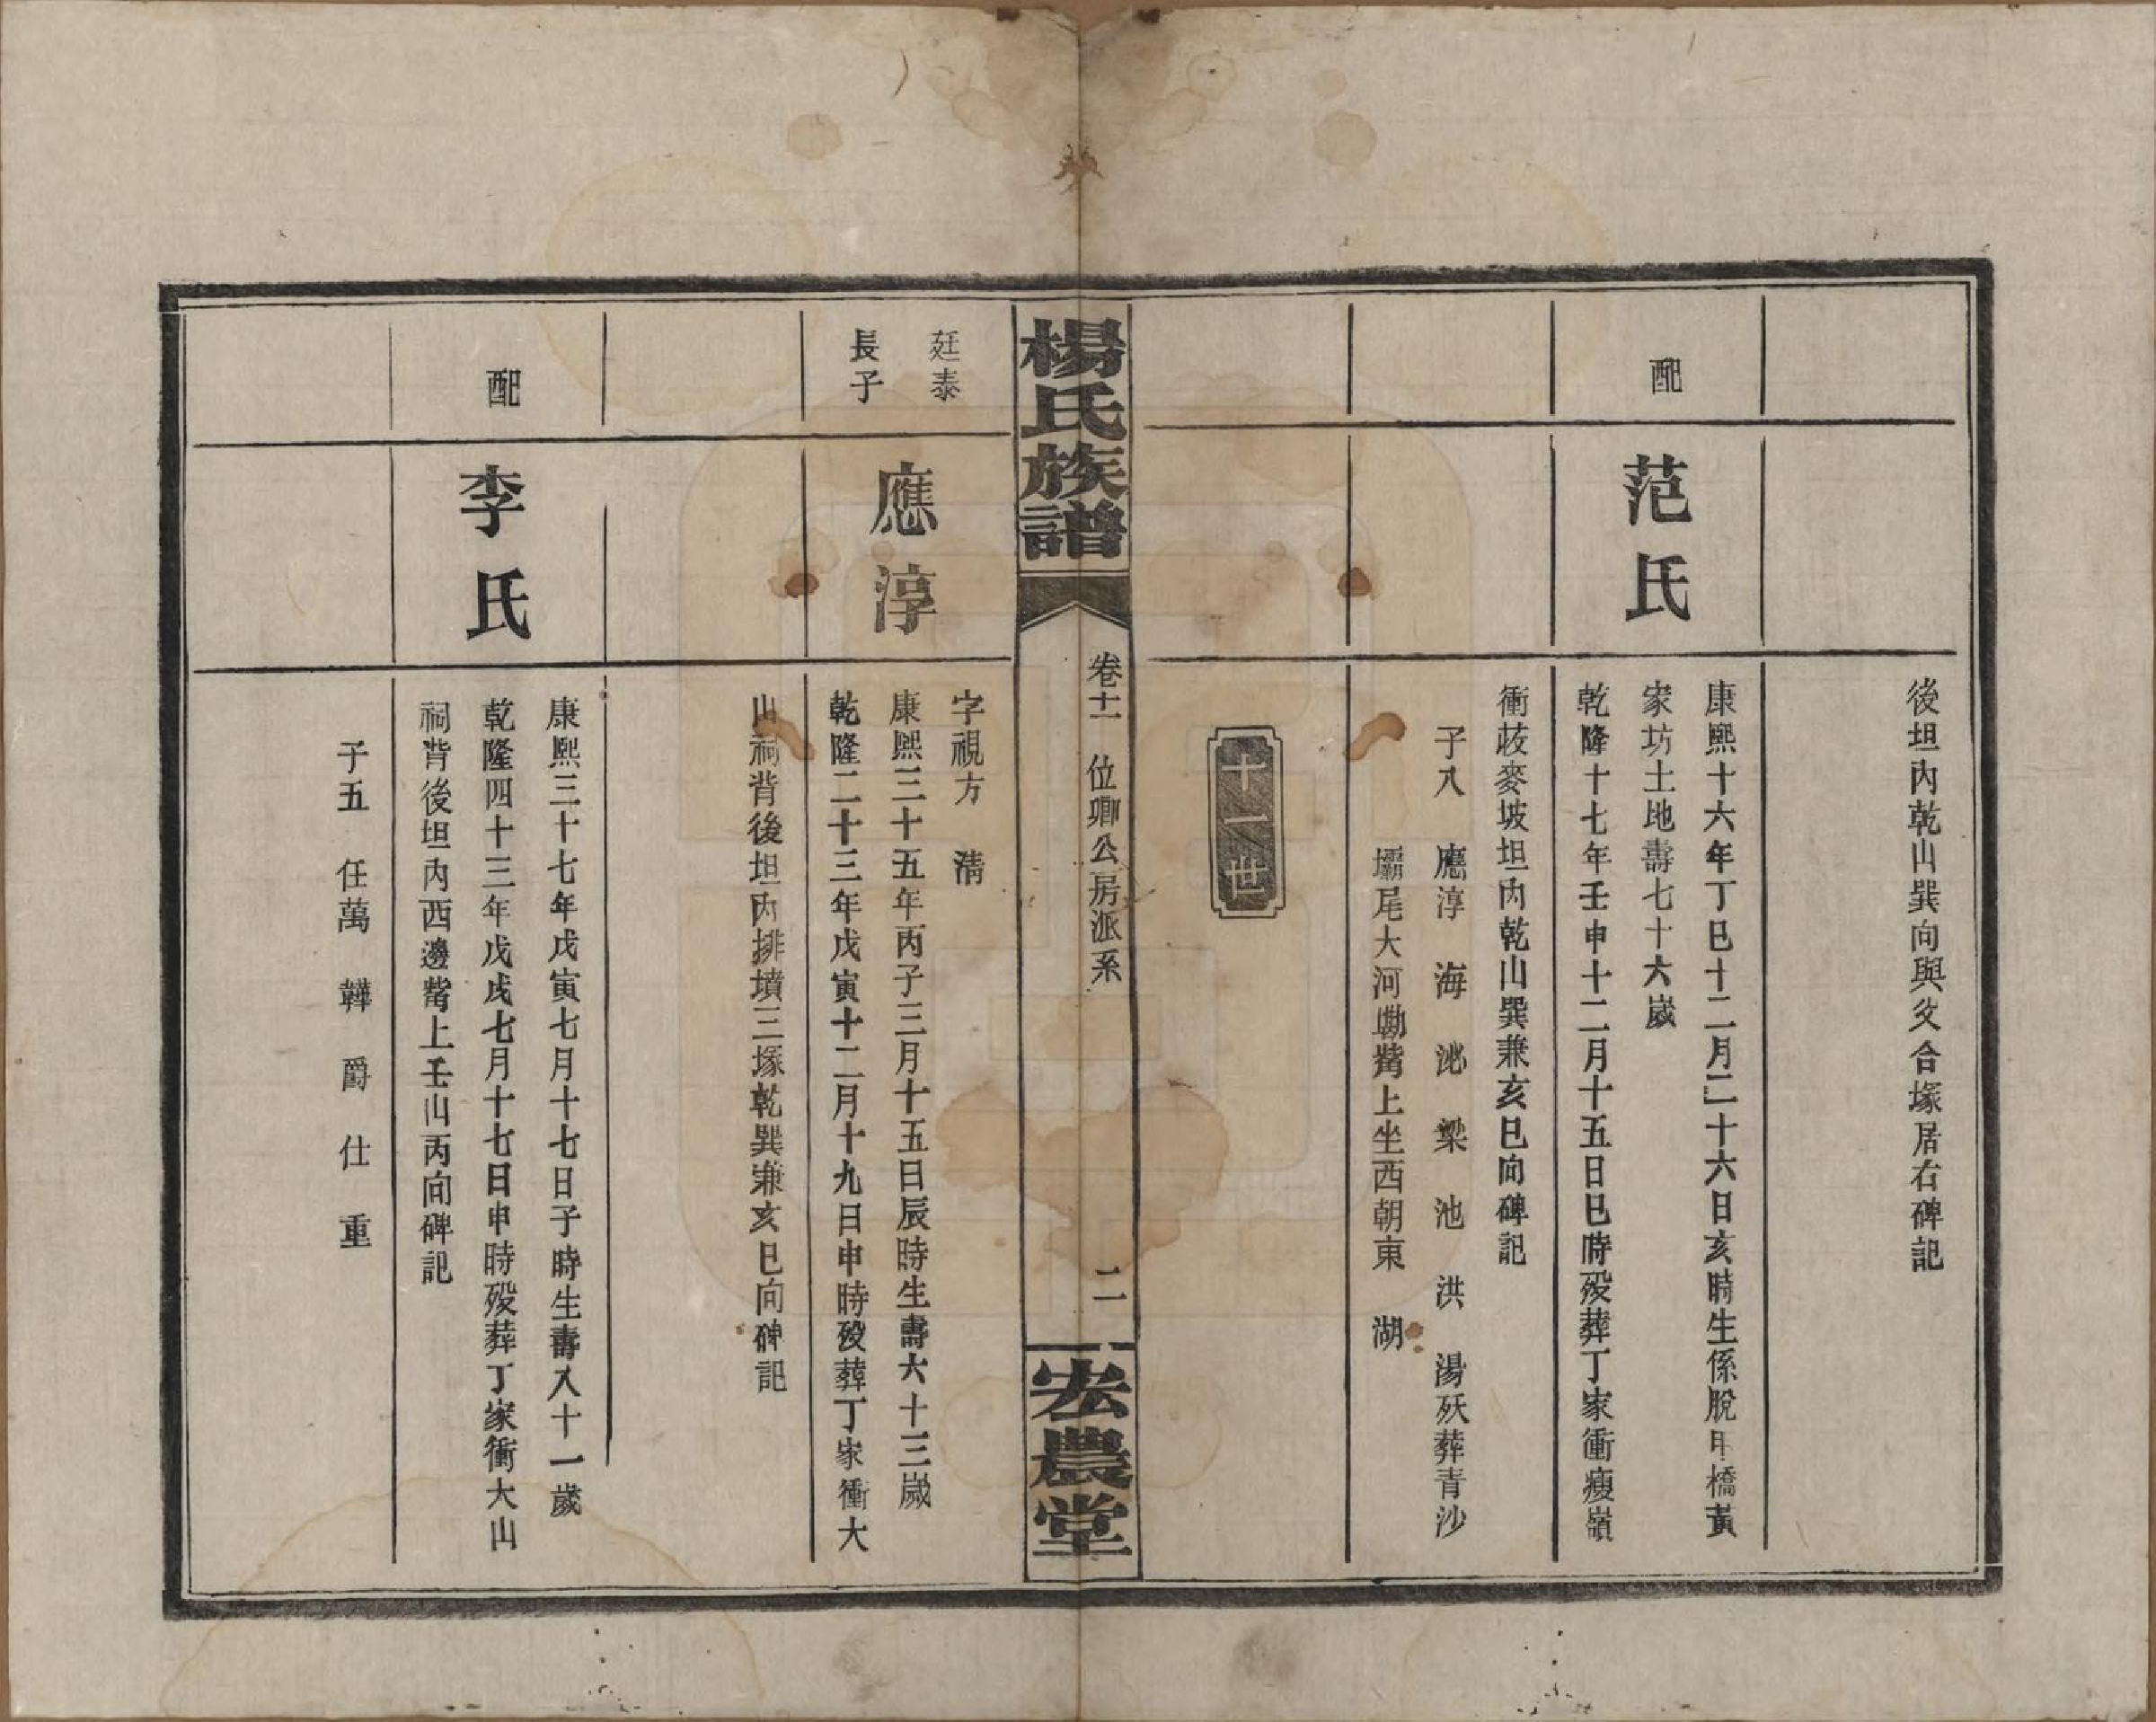 後坦內乾山巽向與父合塚居右碑記
配
范氏
康熙十六年丁巳十二月二十六日亥時生係脫甲橋黃
家坊土地壽七十六歲
乾隆十七年壬申十二月十五日巳時殁葬丁家衝瘦嶺
衝歧麥坡坦內乾山巽兼亥巳向碑記
子八 應淳 海 泌 梁 池 洪 湯殀葬青沙
壩尾大河墈觜上坐西朝東 湖
十一世
楊氏族譜
卷十一 位卿公房派系
二
宏農堂
廷泰
長子
應淳
字視方 清
康熙三十五年丙子三月十五日辰時生壽六十三歲
乾隆二十三年戊寅十二月十九日申時殁葬丁家衝大
山祠背後坦內排墳三塚乾巽兼亥巳向碑記
配
李氏
康熙三十七年戊寅七月十七日子時生壽八十一歲
乾隆四十三年戊戌七月十七日申時殁葬丁家衝大山
祠背後坦內西邊觜上壬山丙向碑記
子五 任萬 韡 爵 仕 重